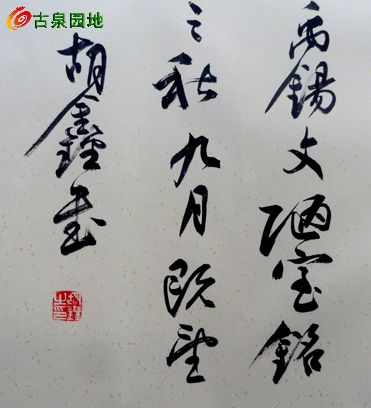 古泉园地
禹锡文陋室铭
之秋九月既望
胡鑫书